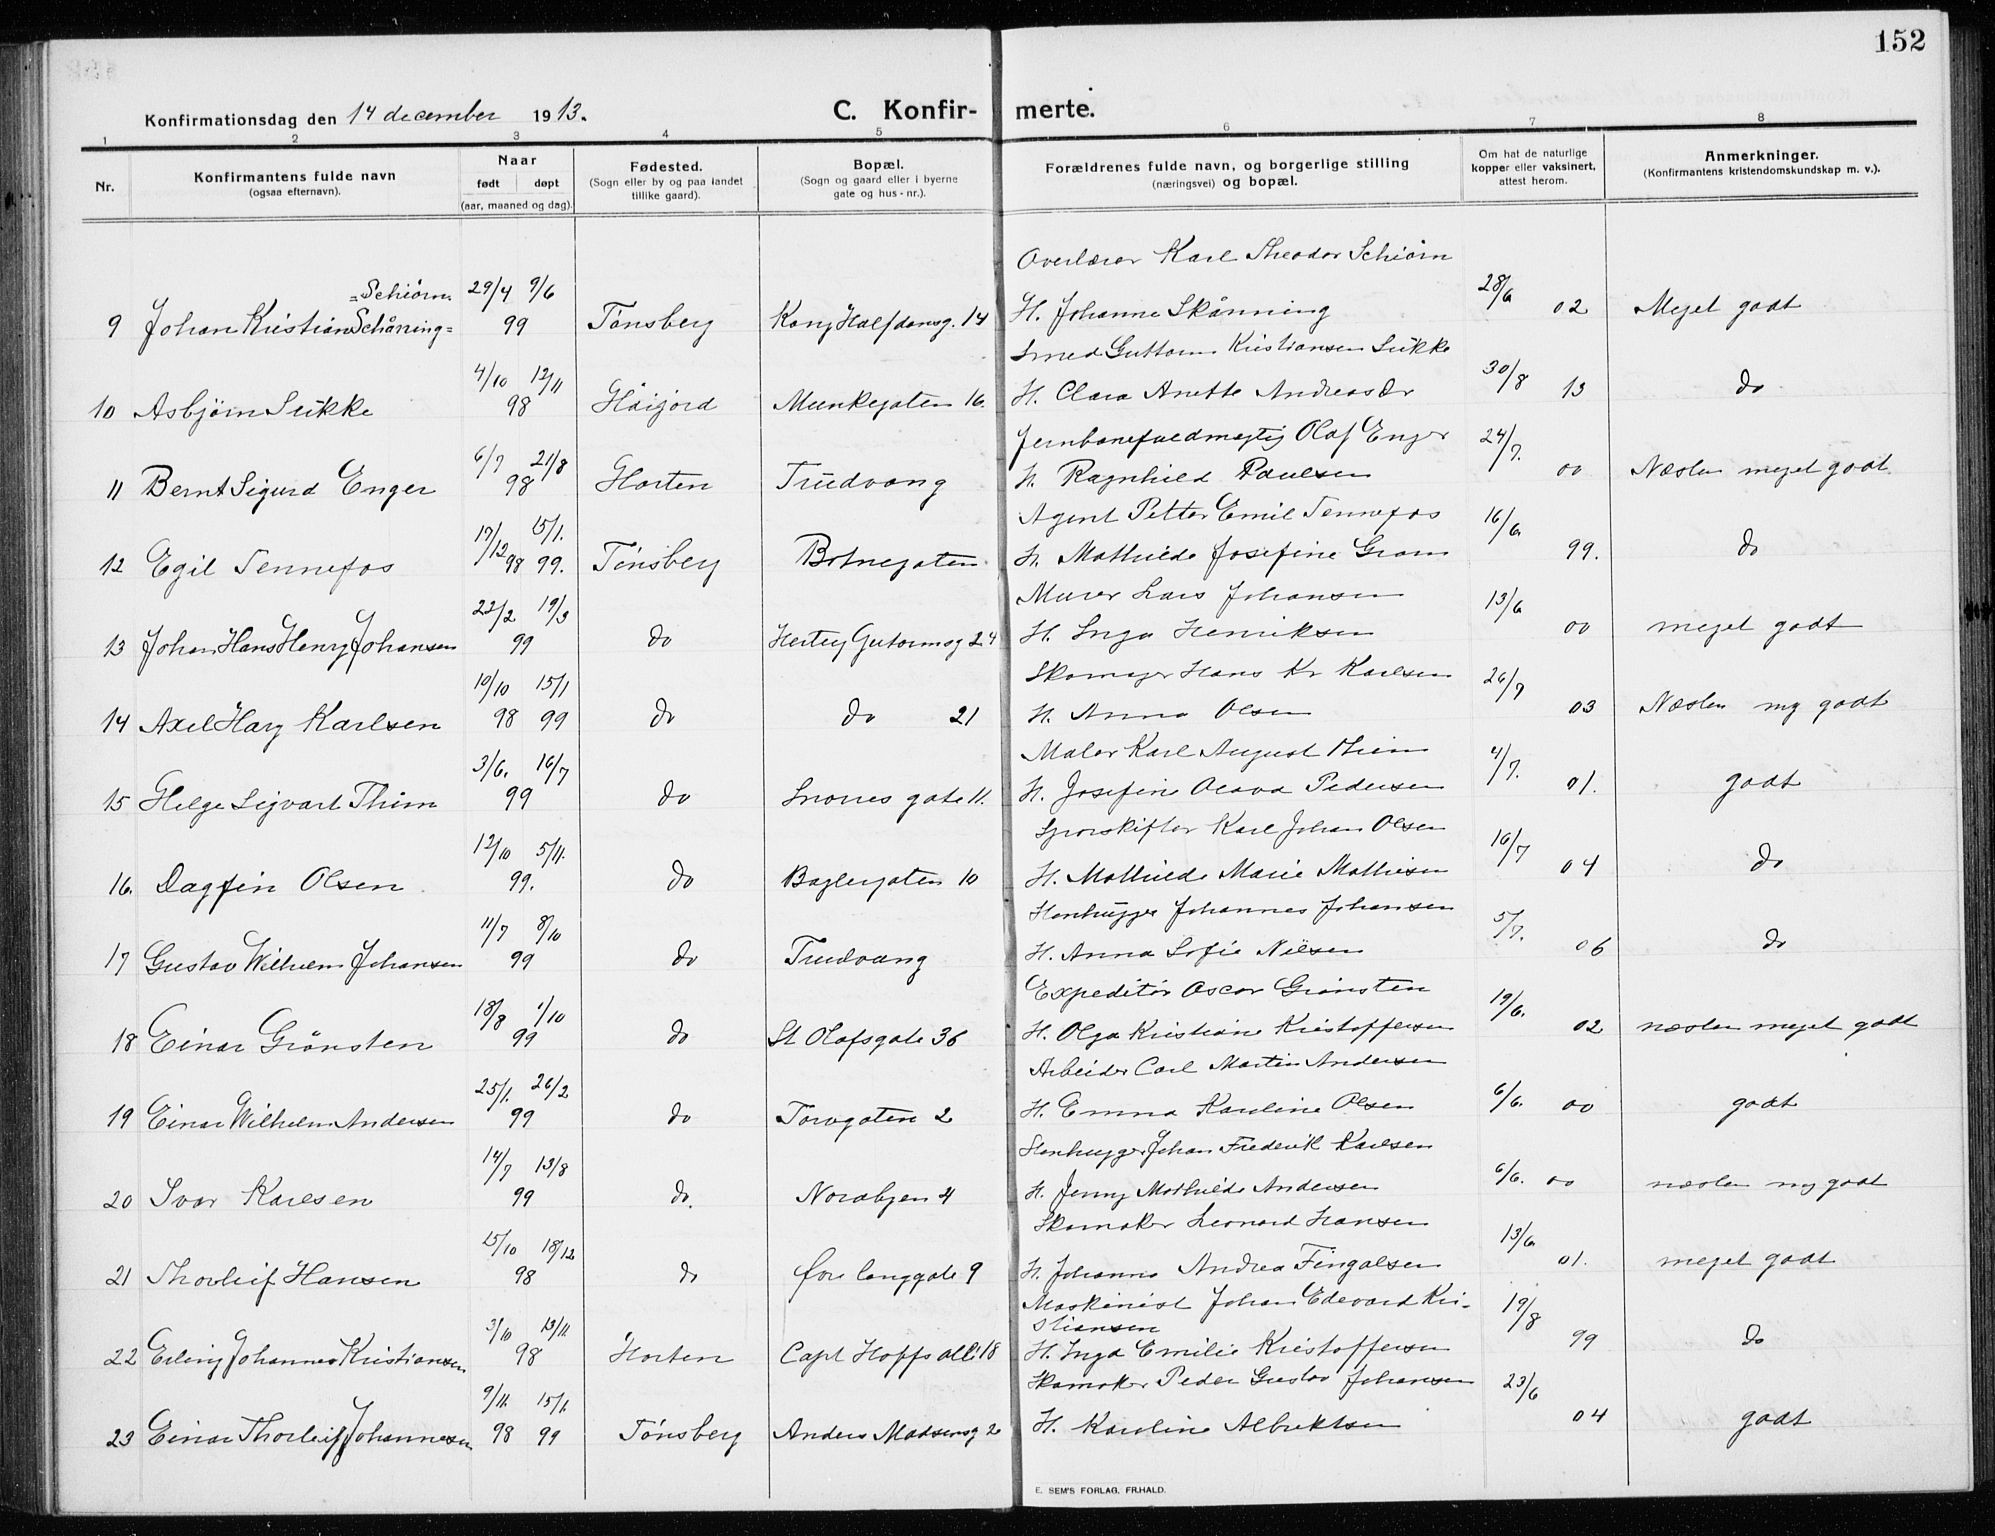 152
Konfirmationsdag den 14 december 1913. C. Konfir- merte.
1 2 3 4 5 6 7 8
Nr. Konfirmantens fulde navn (ogsaa efternavn). Naar født døpt (aar, maaned og dag). Fødested. (Sogn eller by og paa landet tillike gaard). Bopæl. (Sogn og gaard eller i byerne gate og hus-nr.). Forældrenes fulde navn, og borgerlige stilling (næringsvei) og bopæl. Om hat de naturlige kopper eller vaksinert, attest herom. Anmerkninger. (Konfirmantens kristendomskundskap m. v.).
Overlærer Karl Theodor Schiørn
=Schiørn= 29/4 9/6 28/6
9 Johan Kristian Schåning= 99 Tønsberg Kong Halfdansg. 14 H. Johanne Skånning 02 Meget godt
Smed Guttorm Kristiansen Sukke
4/10 12/11 30/8
10 Asbjørn Sukke 98 Håigjord Munkegaten 16. H. Clara Anette Andreasdr 13 do
Jernbanefuldmegtig Olaf Enger
6/7 21/8 24/7.
11 Bernt Sigurd Enger 98 Horten Trudvang H. Ragnhild Paulsen 00 Næsten meget godt
Agent Petter Emil Tennefos
17/12 15/1. 16/6.
12 Egil Tennefos 98 99. Tønsberg Botnegaten H. Mathilde Josefine Gram 99. do
Murer Lars Johansen
22/2 19/3 13/6
13 Johan Hans Henry Johansen 99 do Hertug Gutormsg 24 H. Inga Henriksen 00 meget godt
Skomager Hans Kr Karlsen
10/10 15/1 26/7
14 Axel Hary Karlsen 98 99 do do 21 H. Anna Olsen 03 Næsten mg godt
Maler Karl August Thim
3/6. 16/7 4/7.
15 Helge Sigvart Thim 99 do Snorres gate 11. H. Josefine Olava Pedersen 01. godt
Sporskifter Karl Johan Olsen
12/10 5/11. 16/7
16. Dagfin Olsen 99. do Baglergaten 10 H. Mathilde Marie Mathisen 04 do
Stenhugger Johannes Johansen
11/7 8/10 5/7.
17 Gustav Wilhelm Johansen 99 do Trudvang H. Anna Sofie Nilsen 06 do
Expeditør Oscar Grønsten
18/8 1/10 19/6.
18 Einar Grønsten 99 do St Olafsgate 36 H. Olga Kristiane Kristoffersen 02 næsten meget godt
Arbeider Carl Martin Andersen
25/1. 26/2
19 Einar Wilhelm Andersen 99 do Torvgaten 2 H. Emma Karoline Olsen 6/6. 00 godt
Stenhugger Johan Frederik Karlsen
14/7 13/8
20 Ivar Karlsen 99 do. Norabyen 4 H. Jenny Mathilde Andersen 6/6. 00 næsten mg godt
Skomaker Leonard Hansen
15/10 18/12 13/6.
21 Thorleif Hansen 98 doføre langgate 9 H. Johanne Andrea Fingalsen 01. meget godt
Maskinist Johan Edevard Kri-
stiansen
3/10 13/11. 19/8
22 Erling Johannes Kristiansen 98 Horten Capt Hoffs allé 18 H. Inga Emilie Kristoffersen 99 do
Skomaker Peder Gustav Johansen
9/11. 15/1. 23/6
23 Einar Thorleif Johannesen 98 99 Tønsberg Anders Madsensg 2 H. Karoline Albriktsen 04 godt
E. SEM'S FORLAG, FR.HALD.